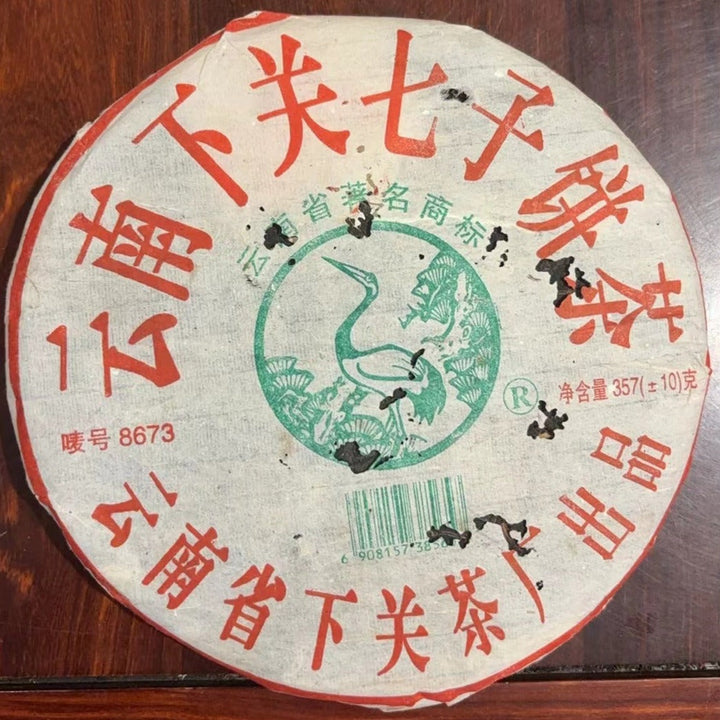 云南下关七子饼茶
云南省著名商标
®
净含量 357(±10)克
唛号 8673
云南省下关茶厂出品